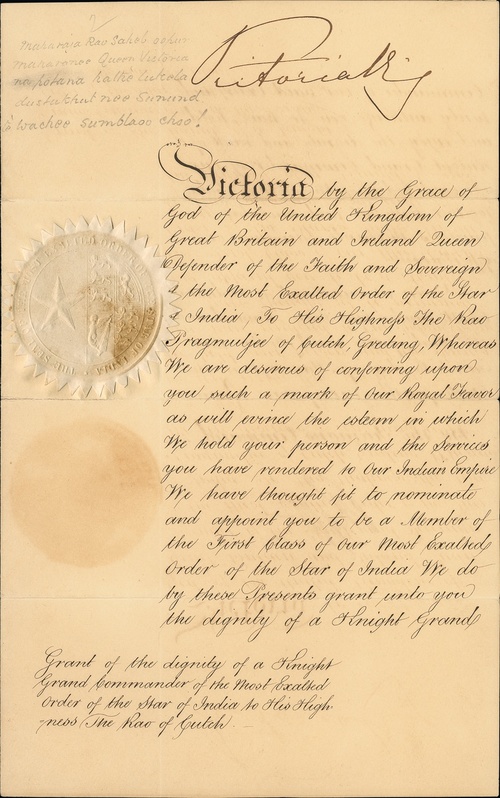 Maharaja Rao Saheb
maharanee Queen Victoria
na potana hathe lukela
dustukhut nee Sunund
wachee sumblavo chso!
Victoria R
Victoria by the Grace of
God of the United Kingdom of
Great Britain and Ireland Queen
Defender of the Faith and Sovereign
of the Most Exalted Order of the Star
of India, To His Highness The Rao
Pragmuljee of Cutch, Greeting, Whereas
We are desirous of conferring upon
you such a mark of Our Royal Favor
as will evince the esteem in which
We hold your person and the Services
you have rendered to Our Indian Empire
We have thought fit to nominate
and appoint you to be a Member of
the First Class of Our Most Exalted
Order of the Star of India We do
by these Presents grant unto you
the dignity of a Knight Grand
Grant of the dignity of a Knight
Grand Commander of the Most Exalted
Order of the Star of India to His High-
ness The Rao of Cutch. —